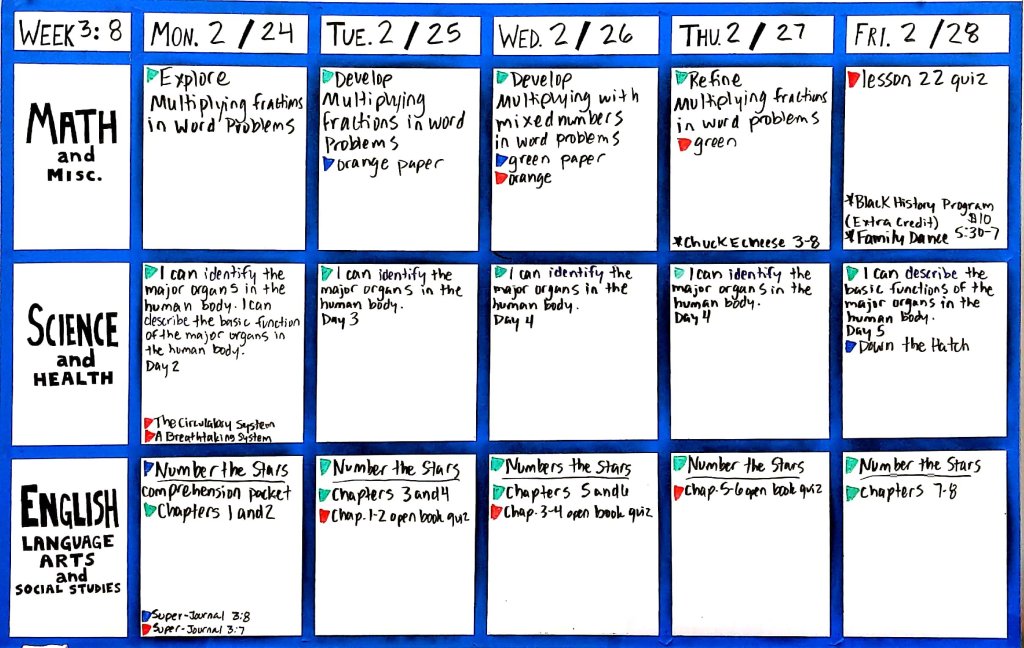 WEEK 3:8
MON. 2/24
TUE. 2/25
WED. 2/26
THU. 2/27
FRI. 2/28
MATH
and
MISC.
Explore
Multiplying fractions
in Word Problems
Develop
Multiplying
fractions in word
Problems
orange paper
Develop
Multiplying with
mixed numbers
in word problems
green paper
orange
Refine
Multiplying fractions
in word problems
green
*Chuck E Cheese 3-8
lesson 22 quiz
*Black History Program
(Extra Credit) $10
*Family Dance 5:30-7
SCIENCE
and
HEALTH
I can identify the
major organs in the
human body. I can
describe the basic function
of the major organs in
the human body.
Day 2
The Circulatory System
A Breathtaking System
I can identify the
major organs in the
human body.
Day 3
I can identify the
major organs in the
human body.
Day 4
I can identify the
major organs in the
human body.
Day 4
I can describe the
basic functions of the
major organs in the
human body.
Day 5
Down the Hatch
ENGLISH
LANGUAGE
ARTS
and
SOCIAL STUDIES
Number the Stars
comprehension packet
Chapters 1 and 2
Super-Journal 3:8
Super-Journal 3:7
Number the Stars
Chapters 3 and 4
Chap. 1-2 open book quiz
Numbers the Stars
Chapters 5 and 6
Chap. 3-4 open book quiz
Number the Stars
Chap. 5-6 open book quiz
Number the Stars
Chapters 7-8